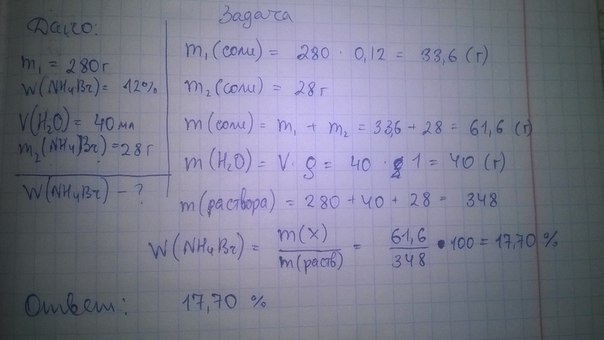 Задача
Дано:
m₁ = 280 г
W(NH₄Br) = 12%
V(H₂O) = 40 мл
m₂(NH₄Br) = 28 г
W(NH₄Br) - ?
m₁(соли) = 280 · 0,12 = 33,6 (г)
m₂(соли) = 28 г
m(соли) = m₁ + m₂ = 33,6 + 28 = 61,6 (г)
m(H₂O) = V · ρ = 40 · 1 = 40 (г)
m(раствора) = 280 + 40 + 28 = 348
W(NH₄Br) = m(X) / m(раств) = 61,6 / 348 · 100 = 17,70 %
Ответ: 17,70 %